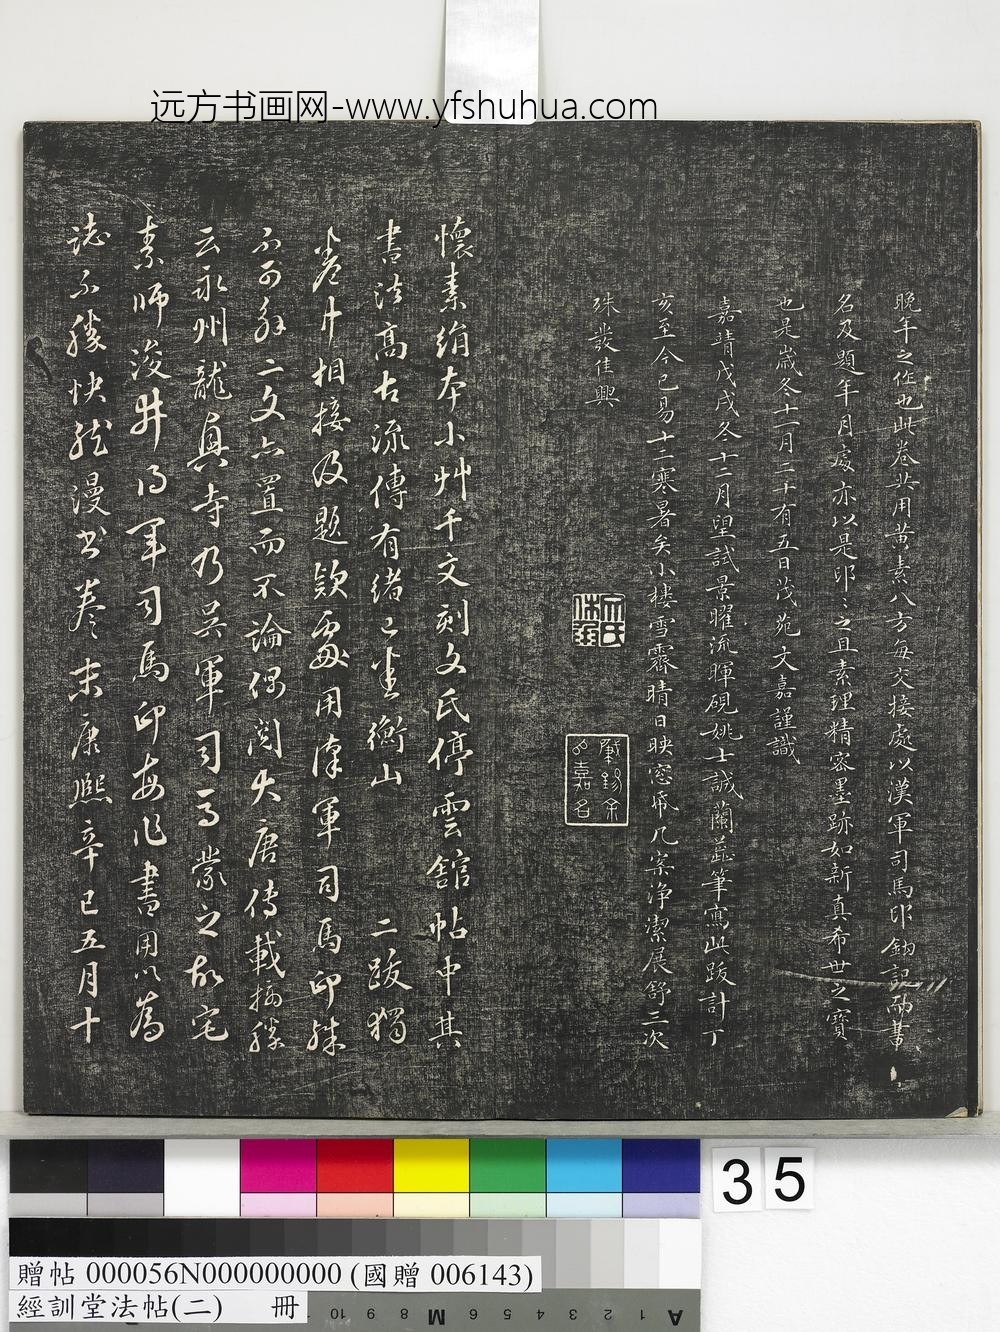 远方书画网-www.yfshuhua.com
晚年之作也此卷共用黄素八方每交接處以漢軍司馬印鈐記而書
名及題年月處亦以是印印之且素理精密墨跡如新真希世之寶
也是歲冬十一月二十有五日茂苑文嘉謹識
嘉靖戊戌冬十二月望試景曜流暉硯姚士誠蘭蕋筆寫此跋計丁
亥至今已易十二寒暑矣小樓雪霽晴日映窓凈几案净潔展舒三次
殊發佳興
文氏休承
肇錫余以嘉名
懷素絹本小艸千文刻文氏停雲舘帖中其
書法高古流傳有緒已盡衡山二跋獨
卷中相接及題欵處用漢軍司馬印殊
不可解二文亦置而不論偶閲大唐傳載
云永州龍真寺乃吳軍司馬蒙之故宅
素師浚井得軍司馬印每作書用以為
誌不勝快然漫書卷末康熙辛巳五月十
35
贈帖 000056N000000000 (國贈 006143)
經訓堂法帖(二) 冊